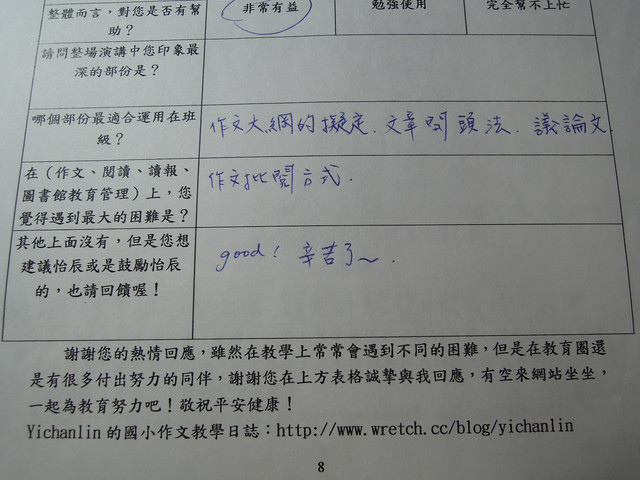 整體而言，對您是否有幫助？
非常有益
勉強使用
完全幫不上忙
請問整場演講中您印象最
深的部份是？
哪個部份最適合運用在班
級？
作文大綱的擬定．文章開頭法．議論文
在（作文、閱讀、讀報、
圖書館教育管理）上，您
覺得遇到最大的困難是？
作文批閱方式．
其他上面沒有，但是您想
建議怡辰或是鼓勵怡辰
的，也請回饋喔！
good！辛苦了～．
謝謝您的熱情回應，雖然在教學上常常會遇到不同的困難，但是在教育圈還
是有很多付出努力的同伴，謝謝您在上方表格誠摯與我回應，有空來網站坐坐，
一起為教育努力吧！敬祝平安健康！
Yichanlin 的國小作文教學日誌：http://www.wretch.cc/blog/yichanlin
8